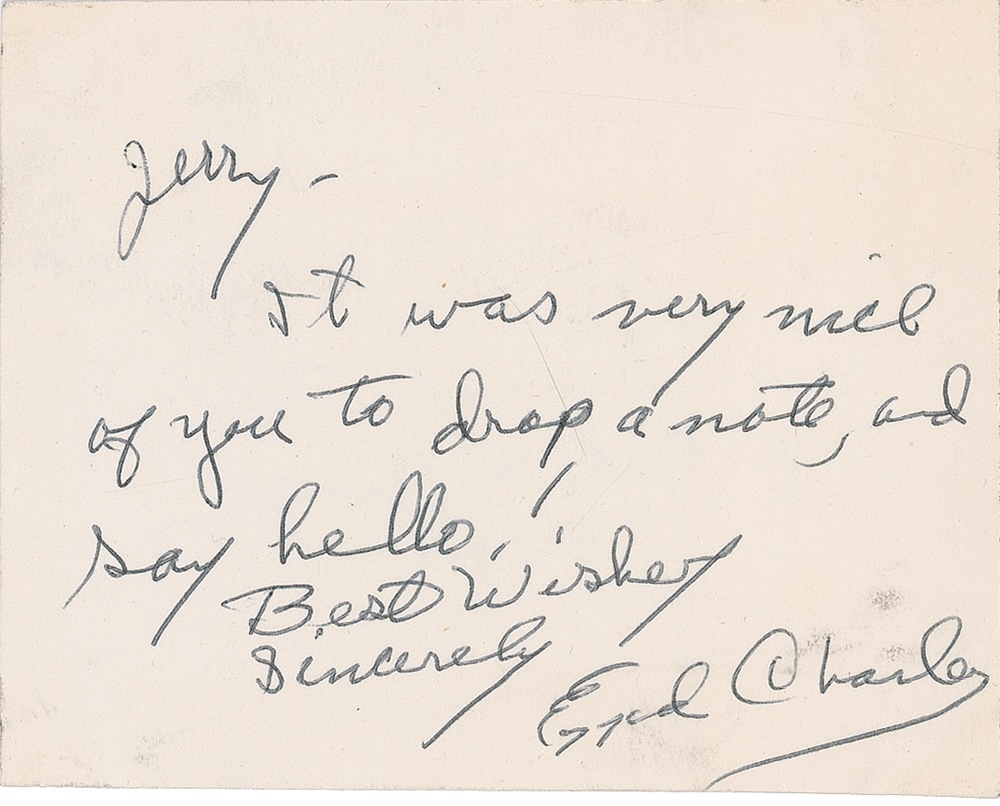 Jerry -
It was very nice
of you to drop a note, and
say hello.
Best Wishes
Sincerely
Ezzard Charles